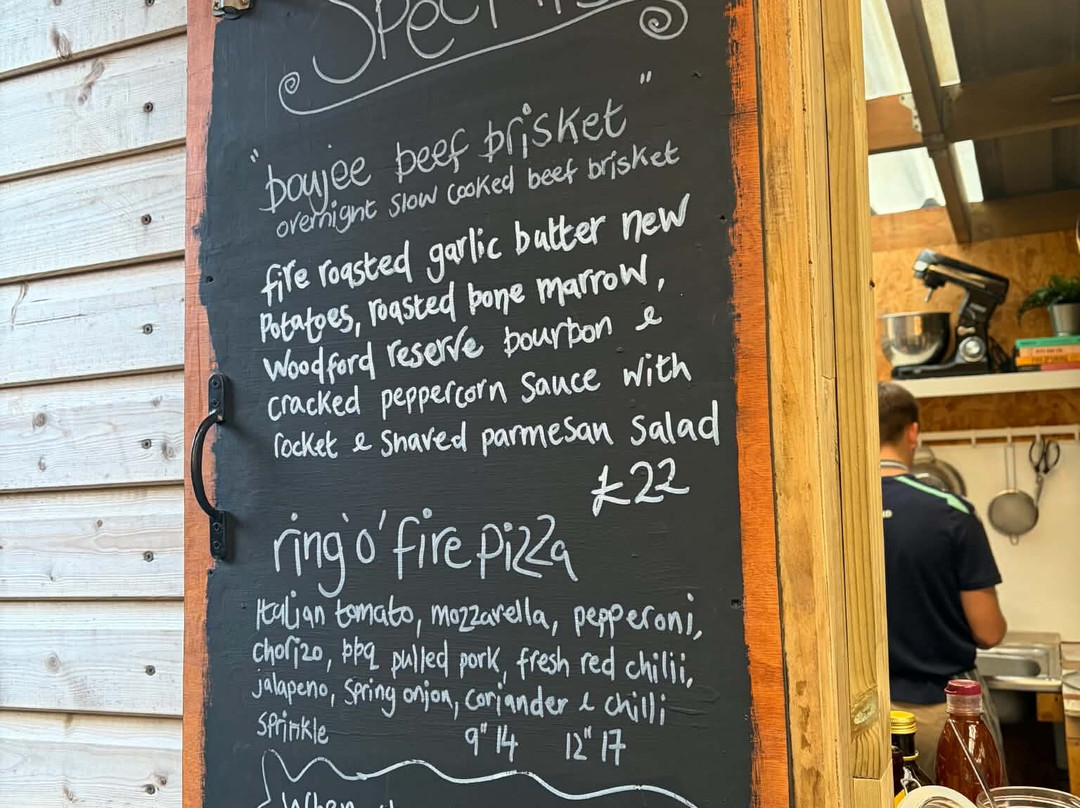 Specials
"boujee beef brisket"
overnight slow cooked beef brisket
fire roasted garlic butter new
potatoes, roasted bone marrow,
Woodford reserve bourbon &
cracked peppercorn sauce with
rocket & shaved parmesan salad
£22
ring 'o' fire pizza
Italian tomato, mozzarella, pepperoni,
chorizo, bbq pulled pork, fresh red chilli,
jalapeno, spring onion, coriander & chilli
sprinkle
9" 14 12" 17
When